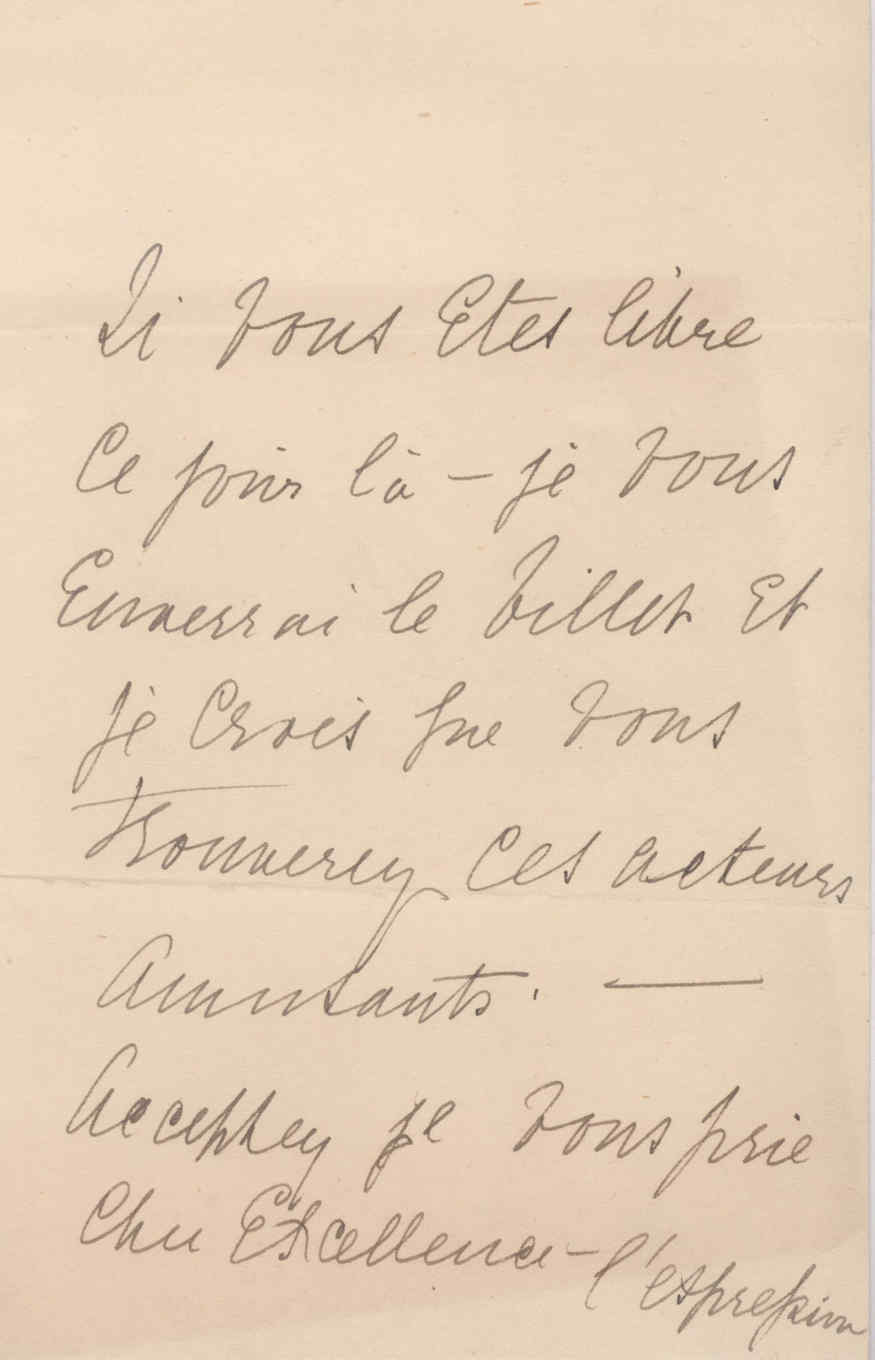 Si vous êtes libre
ce jour là – je vous
enverrai le billet et
je crois que vous
trouverez ces acteurs
amusants. —
Acceptez je vous prie
cher Excellence – l'expression